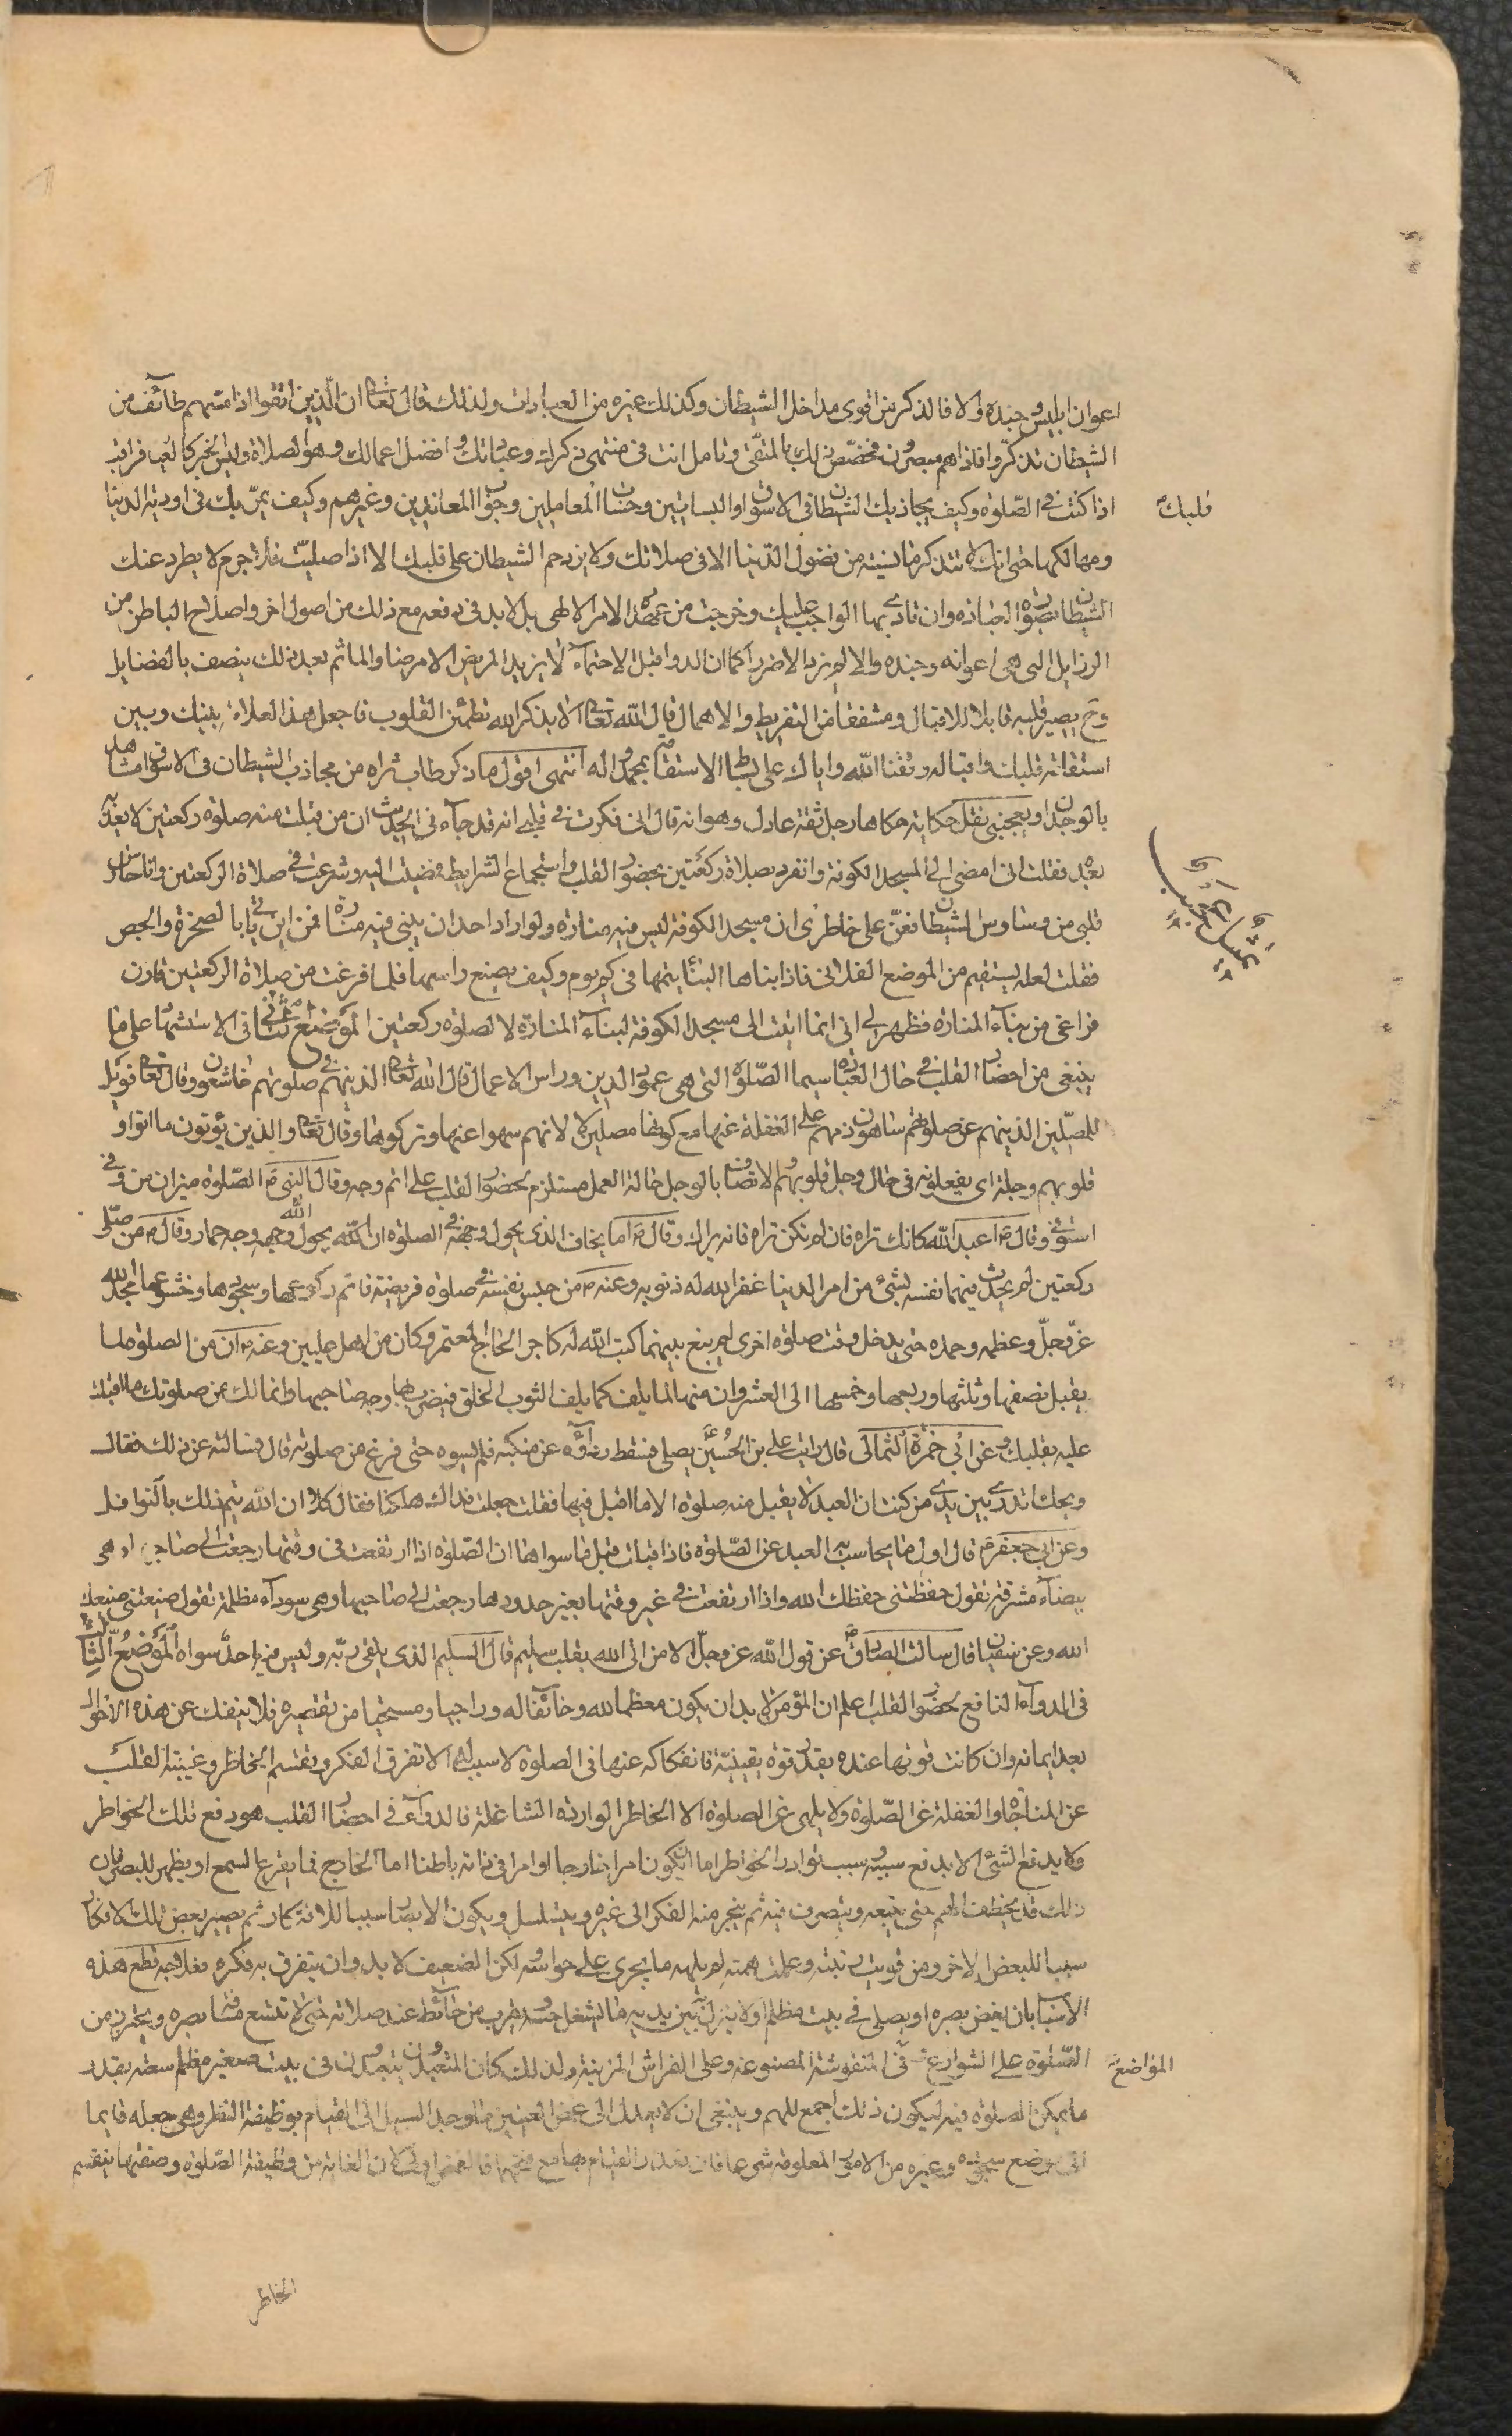 اعوان ابليس وجنده والا فالذكر من اقوى مداخل الشيطان وكذلك غيره من العبادات ولذلك قال تعالى ان الذين اتقوا اذا مسهم طائف من
الشيطان تذكروا فاذا هم مبصرون فخصّص ذلك بالمتقى وتامل انت فى منتهى ذكرك وعباداتك وافضل اعمالك وهو الصلاة وليس الخبر كالعيان فراقب
قلبك
اذا كنت فى الصّلوة وكيف يجاذبك الشيطان فى الاسواق والبساتين وحساب المعاملين وجواب المعاندين وغيرهم وكيف يمرّ بك فى اودية الدنيا
ومهالكها حتى انك لا تتذكر ما نسيته من فضول الدّنيا الا فى صلاتك ولا يزدحم الشيطان على قلبك الا اذا صليت فلا جرم لا يطرد عنك
الشيطان بصورة العبادة وان تادى بها الواجب عليك وخرجت من عهدة الامر الالهى بل لا بد فى دفعه مع ذلك من اصول اخر واصلاح الباطن من
الرذايل التى هى اعوانه وجنده والا لم يزد الا ضررا كما ان الدوا قبل الاحتماء لا يزيد المريض الا مرضا والما ثم بعد ذلك يتصف بالفضايل
وح يصير قلبه قابلا للاقبال ومشفقا من التفريط والاهمال قال الله تعالى الا بذكر الله تطمئن القلوب فاجعل هذا العلامة بينك وبين
استقامة قلبك واقباله وفقنا الله واياك على بساط الاستقامة بمحمد واله انتهى اقول ما ذكر طاب ثراه من مجاذبة الشيطان فى الاسواق مشاهد
بالوجدان ويعجبنى نقل حكاية حكاها رجل ثقة عادل وهو انه قال انى فكرت فى قلبى انه قد جاء فى الحديث ان من قبلت منه صلوة ركعتين لا يعذّبه
بعد فقلت انى امضى الى المسجد الكوفة وانفرد بصلاة ركعتين بحضور القلب واستجماع الشرايط فمضيت اليه وشرعت فى صلاة الركعتين وانا حارس
قلبى من وساوس الشيطان فعنّ على خاطرى ان مسجد الكوفة ليس فيه منارة ولو اراد احد ان يبنى فيه منارة فمن اين ياتى بالصخرة والجص
فقلت لعله يستقيم من الموضع الفلانى فاذا بناها البنّا يتمها فى كم يوم وكيف يصنع راسها فلما فرغت من صلاة الركعتين قارن
فراغى من بناء المنارة فظهر لى انى انما اتيت الى مسجد الكوفة لبناء المنارة لا لصلوة ركعتين الموضع الثانى فى الاستشهاد على ما
ينبغى من احضار القلب فى حال العبادة سيما الصّلوة التى هى عمود الدين وراس الاعمال قال الله تعالى الذين هم فى صلوتهم خاشعون وقال تعالى فويل
للمصلّين الذينهم عن صلوتهم ساهون ذمهم على الغفلة عنها مع كونهم مصلين لا لانهم سهوا عنها وتركوها وقال تعالى والذين يؤتون ما اتوا و
قلوبهم وجلة اى يفعلونه فى حال وجل قلوبهم لاتصاف بالوجل حالة العمل مستلزم لحضور القلب على اتم وجه وقال النبى ص الصّلوة ميزان من وفى
استوفى وقال ص اعبد الله كانك تراه فان لم تكن تراه فانه يراك وقال ص اما يخاف الذى يحول وجهه فى الصلوة ان الله يحول وجهه وجه حمار وقال ص من صلّى
ركعتين لم يحدث فيهما نفسه بشئ من امر الدنيا غفر الله له ذنوبه وعنه ص من حبس نفسه فى صلوة فريضة فاتم ركوعها وسجودها وخشوعها ثم مجّد الله
عزّ وجلّ وعظمه وحمده حتى يدخل وقت صلوة اخرى لم يبغ بينهما كتب الله له كاجر الحاج المعتمر وكان من اهل عليين وعنه ص ان من الصلوة لما
يقبل نصفها وثلثها وربعها وخمسها الى العشر وان منها لما يلف كما يلف الثوب الخلق فيضرب بها وجه صاحبها وانما لك من صلوتك ما اقبلت
عليه بقلبك وعن ابى حمزة الثمالى قال رايت على بن الحسين يصلى فسقط رداؤه عن منكبه فلم يسوه حتى فرغ من صلوته قال فسالته عن ذلك فقال
ويحك تدرى بين يدى من كنت ان العبد لا يقبل منه صلوة الا ما اقبل فيها فقلت جعلت فداك هلكنا فقال كلا ان الله يتم ذلك بالنوافل
وعن ابى جعفر ع قال اول ما يحاسب به العبد عن الصّلوة فاذا قبلت قبل ما سواها ان الصّلوة اذا ارتفعت فى وقتها رجعت الى صاحبها وهى
بيضاء مشرقة تقول حفظتنى حفظك الله واذا ارتفعت فى غير وقتها بغير حدودها رجعت الى صاحبها وهى سوداء مظلمة تقول ضيعتنى ضيعك
الله وعن سفيان قال سالت الصادق ع عن قول الله عز وجلّ الا من اتى الله بقلب سليم قال السليم الذى يلقى ربّه وليس فيه احدٌ سواه الموضع الثالث
فى الدواء النافع لحضور القلب اعلم ان المؤمن لا بد ان يكون معظما لله وخائفا له وراجيا ومستحيا من تقصيره فلا ينفك عن هذه الاحوال
بعد ايمانه وان كانت قوتها عنده بقدر قوة يقينه فانفكاكه عنها فى الصلوة لا سبب له الا تفرق الفكر وتقسم الخاطر وغيبة القلب
عن المناجاة والغفلة عن الصّلوة ولا يلهى عن الصلوة الا الخاطر الواردة الشاغلة فالدواء فى احضار القلب هو دفع تلك الخواطر
ولا يدفع الشئ الا بدفع سببه وسبب توارد الخواطر اما ان يكون امرا خارجا او امرا فى ذاته باطنا اما الخارج فما يقرع السمع او يظهر للبصر فان
ذلك قد يختطف الهم حتى يتبعه ويتصرف فيه ثم ينجر منه الفكر الى غيره ويتسلسل ويكون الابصار سببا للافتكار ثم يصير بعض تلك الافكار
سببا للبعض الاخر ومن قويت نيته وعلت همته لم يلهه ما يجرى على حواسه لكن الضعيف لا بد وان يتفرق به فكره فعلاجه قطع هذه
الاسباب بان يغض بصره او يصلى فى بيت مظلم او لا يترك بين يديه ما يشغل حسه ويقرب من حائط عند صلاته حتى لا تتسع مسافة بصره ويحترز من
الصّلوة على الشوارع وفى المنقوشة المصنوعة وعلى الفراش المزينة ولذلك كان المتعبدون يتعبدون فى بيت صغير مظلم سعته بقدر
المواضع
ما يمكن الصلوة فيه ليكون ذلك اجمع للهم وينبغى ان لا يعدل الى غمض العينين ما وجد السبيل الى القيام بوظيفة النظر وهى جعله قايما
الى موضع سجوده وغيره من الامور المعلومة شرعا فان تعذر القيام بها مع فتحها فالغمض اولى لان الفائت من وظيفة الصّلوة وصفتها بتقسم
الخاطر